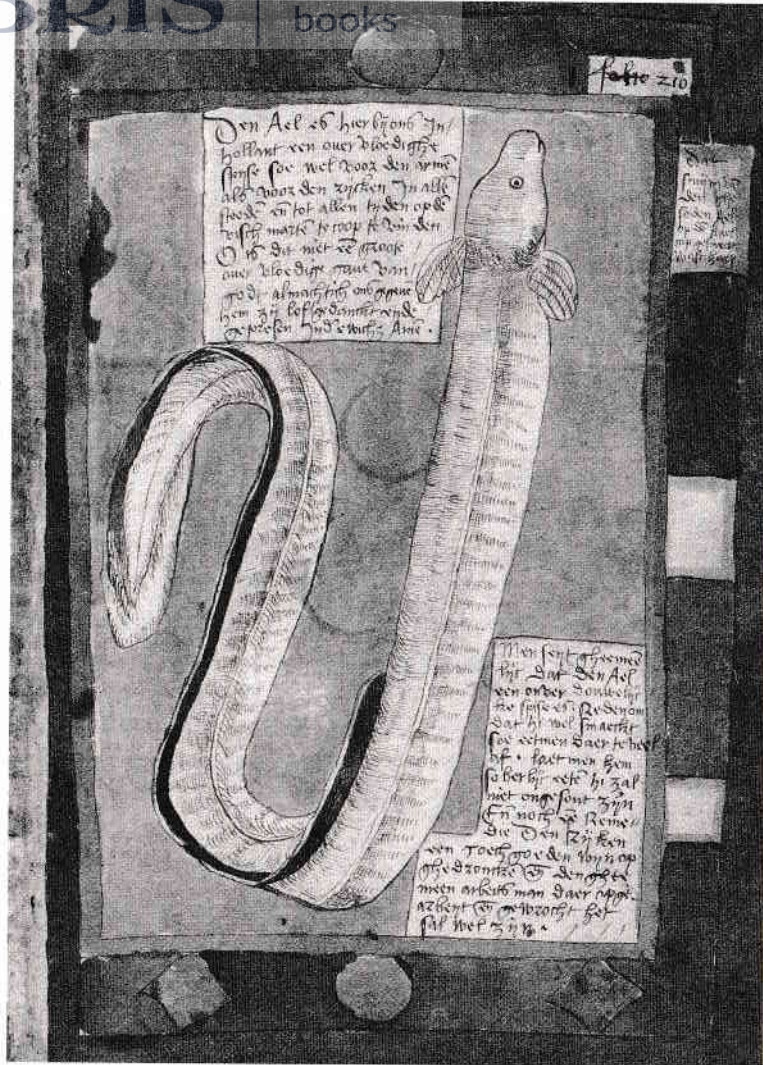 BRIS | books
folio 210
Den Ael es hier bÿ ons In
hollant een over vloedighe
spise soe wel voor den arme
als voor den rijcken In alle
steden en tot allen tyden op de
visch marct te coop te vinden
O is dit niet ee groote
over vloedige gave van
godt almachtich ons gegeve
hem zij lof gedanckt ende
gepresen Ind ewich Ame.
Dat
den
Men seyt gheemee
lijc dat den Ael
een onver douwelij
cke spise es. Reden om
dat hi wel smaeckt
soe eetmen daer te veel
af. laet men hem
soberlijc eete hi zal
niet ongesont zijn
En noch ee Reme
die Den Rijcken
een roech goeden wijn op
ghedroncke en den ghe
meen arbeits man daer op ge
arbeyt en gewrocht het
sal wel zijn.